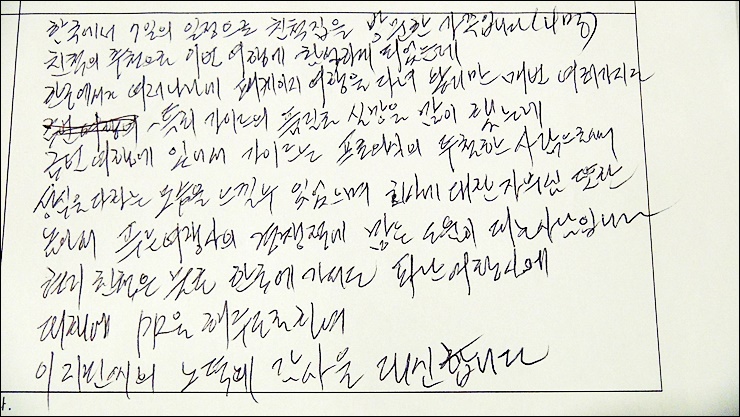 한국에서 7일의 일정으로 친척집을 방문한 가족입니다 (4명)
친척의 추천으로 이번 여행에 참석하게 되었는데
한국에서도 여러나라에 패케이지 여행을 다녀 봤지만 매번 여러가지로
특히 가이드의 품질로 실망을 많이 했는데
금번 여행에 있어서 가이드는 프로의식이 투철한 사람으로써
성실을 다하는 모습을 느낄수 있었으며 회사에 대한 자부심 또한
높아서 푸른여행사의 경쟁력에 많은 도움이 되는 사람입니다
현지 친척은 물론 한국에 가서도 푸른여행사에
대해 PR을 해주도록 하며
이 리틴씨의 노력에 감사을 대신합니다